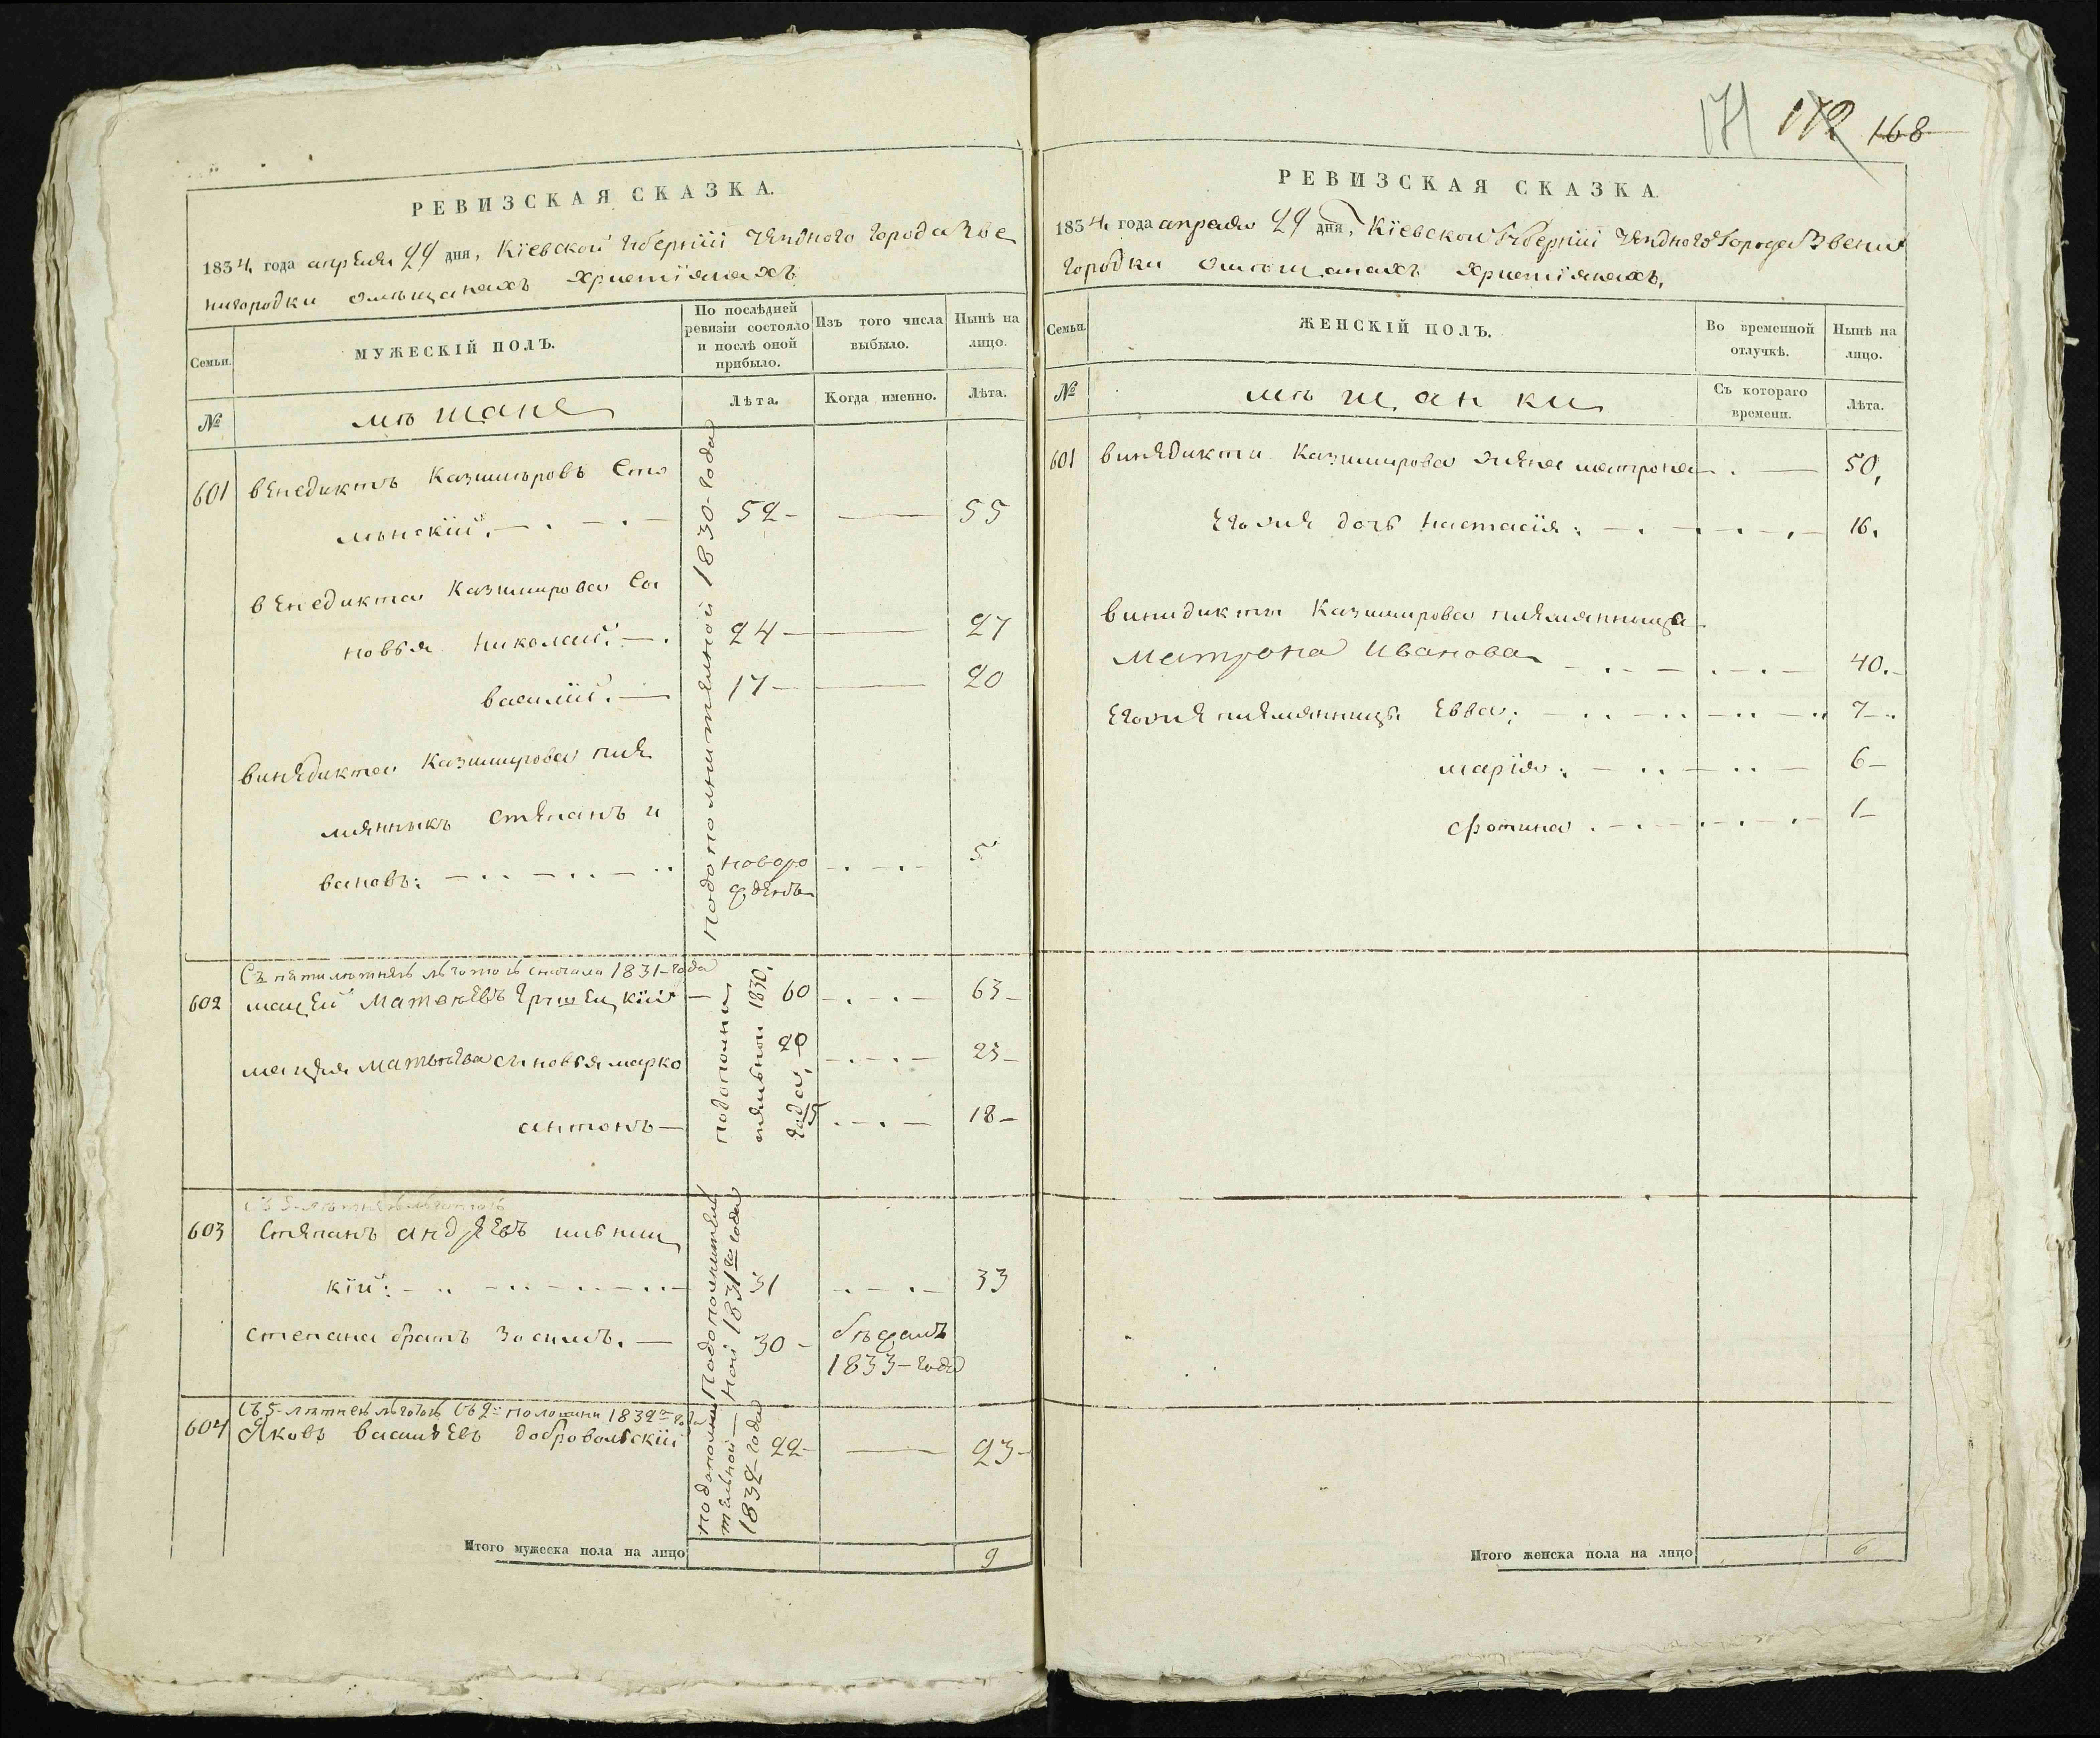 171 172 168
РЕВИЗСКАЯ СКАЗКА.
1834 года апреля 24 дня, Кіевской губерніи уезднаго города Зве
нигородки омѣщанахъ христіянахъ
Семьи.
МУЖЕСКІЙ ПОЛЪ.
По послѣдней ревизіи состояло и послѣ оной прибыло.
Изъ того числа выбыло.
Нынѣ на лицо.
№
мѣщане
Лѣта.
Когда именно.
Лѣта.
Подополнителной 1830-года
601 венедиктъ Казимировъ
52 – 55
венедикта Казимирова сы
новья николай. 24 – 27
василій. 17 – 20
винядикта Казимирова пле
мянникъ степанъ и
вановъ: новоро 5
жденъ
Съ пятилѣтней лготою 1831-года
602 мацей 60 63
сыновья марко 20 23
антонъ 15 18
подополни
тельной 1830.
года
603 Степанъ андреевъ
кій: 31 33
степана братъ зосимъ. 30 бѣжалъ
1833-года
Подополнител
ной 1831го года
Съ 5-лѣтней лготою Съ 2й половини 1832го года
604 Яковъ васильевъ добровольскій 22 – 23
подополни
тельной
1832-года
Итого мужеска пола на лицо 9
РЕВИЗСКАЯ СКАЗКА.
1834 года апреля 24 дня, Кіевской губерніи уезднаго города Звени
городки омѣщанахъ христіянахъ,
Семьи.
ЖЕНСКІЙ ПОЛЪ.
Во временной отлучкѣ.
Нынѣ на лицо.
№
мѣщанки
Съ котораго времени.
Лѣта.
601 винядикта Казимирова жена матрона 50,
Его дочь настасія: 16.
винидикта Казимирова племянница
Матрона Иванова 40.
племянницы Евва; 7
марія: 6
фотина 1
Итого женска пола на лицо 6